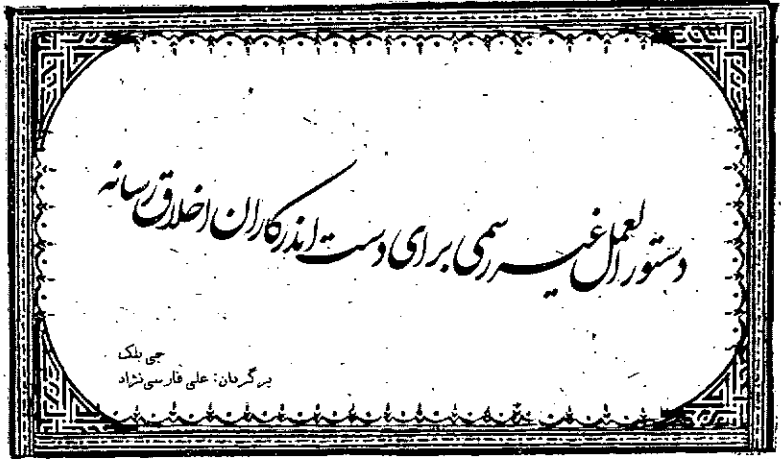 دستورالعمل غیررسمی برای دست‌اندرکاران اخلاق رسانه
جی بلک
برگردان: علی فارسی‌نژاد